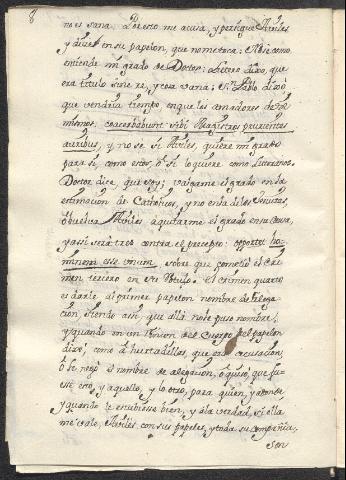 8
no es sana. Por esto me acusa, y persigue Aviles
y dize en su papelon, que no me toca: Nose como
entiende mi grado de Doctor: Lutero dixo, que
era titulo sine re, y cosa vana; Sn. Pablo dixo
que vendria tiempo en que los amadores de si
mismos, coacerbabunt sibi Magistros prurientes
auribus, y no se si Aviles, quiere mi grado
para si, como estos, ò si lo quiere como Luterano.
Doctor dice, que soy; valgame el grado en la
estimacion de Catholicos, y no en la de los
ò buelva Aviles a quitarme el grado en su
y assi será reo contra el precepto: oportet
esse unum, sobre que cometió el Cri-
men tercero en su Titulo. El crimen quarto
es darle al primer papelon nombre de alega-
cion, siendo assi, que allá no se puso nombre,
y quando en un rincon del Cuerpo del papelon
dixo, como à hurtadillas, que era acusacion,
ò se negó el nombre de alegacion, ò quiso, que fu-
esse esto, y aquello, y lo otro, para quien, y adonde,
y quando le estubiesse bien, y á la verdad, si ella
me vale, Aviles con sus papeles, y toda su compañia,
son